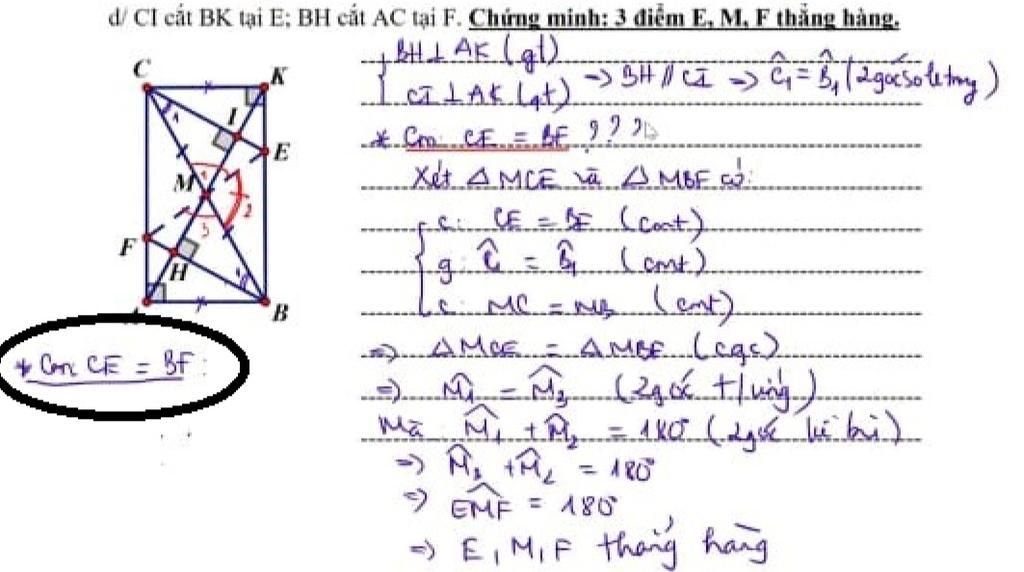 d/ CI cắt BK tại E; BH cắt AC tại F. Chứng minh: 3 điểm E, M, F thẳng hàng.
BH ⊥ AK (gt)
CI ⊥ AK (gt) => BH // CI => Ĉ₁ = B̂₁ (2 góc so le trong)
* Cm CE = BF ? ? ?
Xét △ MCE và △ MBF có:
c: CE = BF (cmt)
g: Ĉ₁ = B̂₁ (cmt)
c: MC = MB (cmt)
=> △ MCE = △ MBF (cgc)
=> M̂₁ = M̂₃ (2 góc t/ứng)
Mà M̂₁ + M̂₂ = 180° (2 góc kề bù)
=> M̂₃ + M̂₂ = 180°
=> EMF = 180°
=> E, M, F thẳng hàng
C
K
1
I
E
M
1
2
3
F
H
1
A
B
* Cm CE = BF: